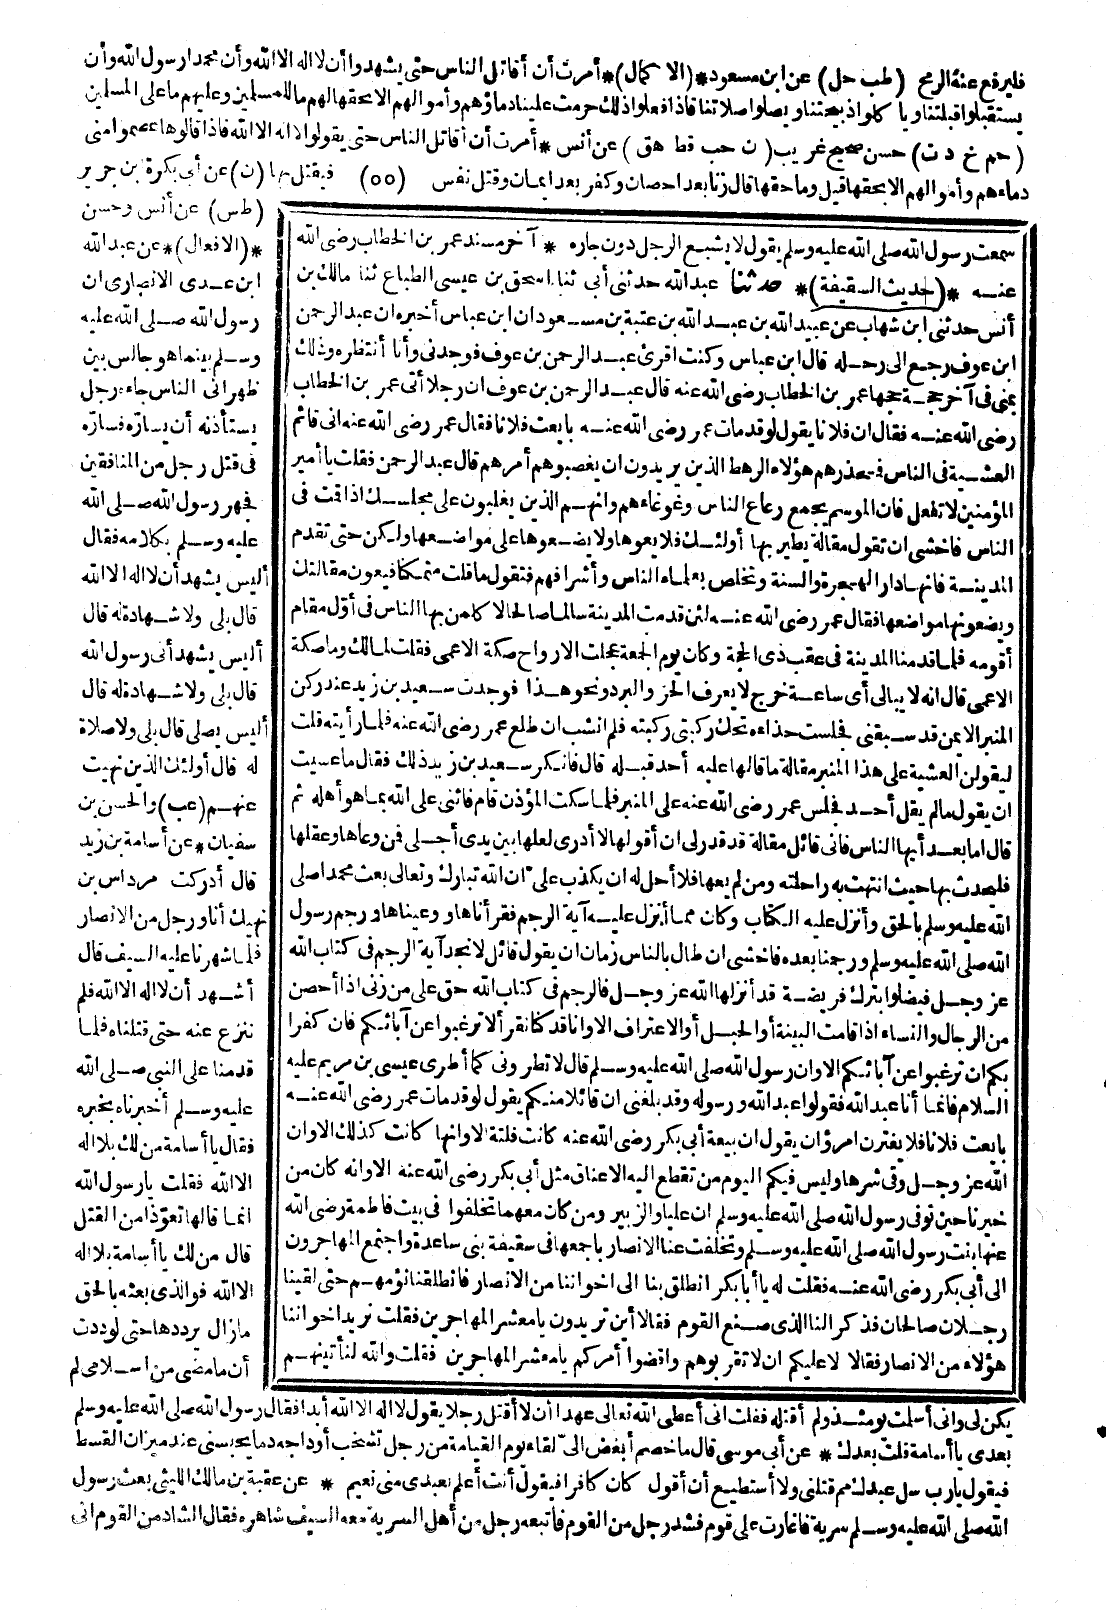 فليرفع عنه الرمح (طب حل) عن ابن مسعود*(الاكمال)*أمرت أن أقاتل الناس حتى يشهدوا أن لا اله الا الله وأن محمدا رسول الله وأن
يستقبلوا قبلتنا ويأكلوا ذبيحتنا ويصلوا صلاتنا فاذا فعلوا ذلك حرمت علينا دماؤهم وأموالهم الا بحقها لهم ما للمسلمين وعليهم ما على المسلمين
(حم خ د ت) حسن صحيح غريب (ن حب قط هق) عن أنس * أمرت أن أقاتل الناس حتى يقولوا لا اله الا الله فاذا قالوها عصموا منى
دماءهم وأموالهم الا بحقها قيل وما حقها قال زنا بعد احصان وكفر بعد ايمان وقتل نفس (٥٥) فيقتل بها (ن) عن أبى بكرة ابن جرير
سمعت رسول الله صلى الله عليه وسلم يقول لا يشبع الرجل دون جاره * آخر مسند عمر بن الخطاب رضى الله
عنه *(حديث السقيفة)* حدثنا عبد الله حدثنى أبى ثنا اسحق بن عيسى الطباع ثنا مالك بن
أنس حدثنى ابن شهاب عن عبيد الله بن عبد الله بن عتبة بن مسعود ان ابن عباس أخبره ان عبد الرحمن
ابن عوف رجع الى رحله قال ابن عباس وكنت اقرئ عبد الرحمن بن عوف فوجدنى وأنا أنتظره وذلك
بمنى فى آخر حجة حجها عمر بن الخطاب رضى الله عنه قال عبد الرحمن بن عوف ان رجلا أتى عمر بن الخطاب
رضى الله عنه فقال ان فلانا يقول لو قد مات عمر رضى الله عنه بايعت فلانا فقال عمر رضى الله عنه انى قائم
العشية فى الناس فمحذرهم هؤلاء الرهط الذين يريدون ان يغصبوهم أمرهم قال عبد الرحمن فقلت يا أمير
المؤمنين لا تفعل فان الموسم يجمع رعاع الناس وغوغاءهم وانهم الذين يغلبون على مجلسك اذا قمت فى
الناس فاخشى ان تقول مقالة يطير بها أولئك فلا يعوها ولا يضعوها على مواضعها ولكن حتى تقدم
المدينة فانها دار الهجرة والسنة وتخلص بعلماء الناس وأشرافهم فتقول ما قلت متمكنا فيعون مقالتك
ويضعونها مواضعها فقال عمر رضى الله عنه لئن قدمت المدينة سالما صالحا لا كلمن بها الناس فى أول مقام
أقومه فلما قدمنا المدينة فى عقب ذى الحجة وكان يوم الجمعة عجلت الارواح صكة الاعمى فقلت لمالك وما صكة
الاعمى قال انه لا يبالى أى ساعة خرج لا يعرف الحر والبرد ونحو هذا فوجدت سعيد بن زيد عند ركن
المنبر الايمن قد سبقنى فجلست حذاءه تحك ركبتى ركبته فلم انشب ان طلع عمر رضى الله عنه فلما رأيته قلت
ليقولن العشية على هذا المنبر مقالة ما قالها عليه أحد قبله قال فانكر سعيد بن زيد ذلك فقال ما عسيت
ان يقول ما لم يقل أحد فجلس عمر رضى الله عنه على المنبر فلما سكت المؤذن قام فاثنى على الله بما هو أهله ثم
قال اما بعد أيها الناس فانى قائل مقالة قد قدر لى ان أقولها لا أدرى لعلها بين يدى أجلى فمن وعاها وعقلها
فليحدث بها حيث انتهت به راحلته ومن لم يعها فلا أحل له ان يكذب على ان الله تبارك وتعالى بعث محمدا صلى
الله عليه وسلم بالحق وأنزل عليه الكتاب وكان مما أنزل عليه آية الرجم فقرأناها ووعيناها ورجم رسول
الله صلى الله عليه وسلم ورجمنا بعده فاخشى ان طال بالناس زمان ان يقول قائل لا نجد آية الرجم فى كتاب الله
عز وجل فيضلوا بترك فريضة قد أنزلها الله عز وجل فالرجم فى كتاب الله حق على من زنى اذا أحصن
من الرجال والنساء اذا قامت البينة أو الحبل أو الاعتراف الا وانا قد كنا نقرأ لا ترغبوا عن آبائكم فان كفرا
بكم ان ترغبوا عن آبائكم الا وان رسول الله صلى الله عليه وسلم قال لا تطرونى كما أطرى عيسى بن مريم عليه
السلام فانما أنا عبد الله فقولوا عبد الله ورسوله وقد بلغنى ان قائلا منكم يقول لو قد مات عمر رضى الله عنه
بايعت فلانا فلا يغترن امرؤ ان يقول ان بيعة أبى بكر رضى الله عنه كانت فلتة الا وانها كانت كذلك الا وان
الله عز وجل وقى شرها وليس فيكم اليوم من تقطع اليه الاعناق مثل أبى بكر رضى الله عنه الا وانه كان من
خبرنا حين توفى رسول الله صلى الله عليه وسلم ان عليا والزبير ومن كان معهما تخلفوا فى بيت فاطمة رضى الله
عنها بنت رسول الله صلى الله عليه وسلم وتخلفت عنا الانصار باجمعها فى سقيفة بنى ساعدة واجتمع المهاجرون
الى أبى بكر رضى الله عنه فقلت له يا أبا بكر انطلق بنا الى اخواننا من الانصار فانطلقنا نؤمهم حتى لقينا
رجلان صالحان فذكرا لنا الذى صنع القوم فقالا أين تريدون يا معشر المهاجرين فقلت نريد اخواننا
هؤلاء من الانصار فقالا لا عليكم ان لا تقربوهم واقضوا أمركم يا معشر المهاجرين فقلت والله لنأتينهم
(طس) عن أنس وحسن
*(الافعال)* عن عبد الله
ابن عدى الانصارى ان
رسول الله صلى الله عليه
وسلم بينما هو جالس بين
ظهرانى الناس جاءه رجل
يستأذنه أن يساره فساره
فى قتل رجل من المنافقين
فجهر رسول الله صلى الله
عليه وسلم بكلامه فقال
أليس يشهد أن لا اله الا الله
قال بلى ولا شهادة له قال
أليس يشهد أنى رسول الله
قال بلى ولا شهادة له قال
أليس يصلى قال بلى ولا صلاة
له قال أولئك الذين نهيت
عنهم (عب) والحسن بن
سفيان * عن أسامة بن زيد
قال أدركت مرداس بن
نهيك أنا ورجل من الانصار
فلما شهرنا عليه السيف قال
أشهد أن لا اله الا الله فلم
ننزع عنه حتى قتلناه فلما
قدمنا على النبى صلى الله
عليه وسلم أخبرناه بخبره
فقال يا أسامة من لك بلا اله
الا الله فقلت يا رسول الله
انما قالها تعوذا من القتل
قال من لك يا أسامة بلا اله
الا الله فوالذى بعثه بالحق
ما زال يرددها حتى لوددت
أن ما مضى من اسلامى لم
يكن لى وانى أسلمت يومئذ ولم أقتله فقلت انى أعطى الله تعالى عهدا أن لا أقتل رجلا يقول لا اله الا الله أبدا فقال رسول الله صلى الله عليه وسلم
بعدى يا أسامة قلت بعدك * عن أبى موسى قال ما خصم أبغض الى لقاء يوم القيامة من رجل تشخب أوداجه دما يحبسنى عند ميزان القسط
فيقول يا رب سل عبدك مم قتلنى ولا أستطيع أن أقول كان كافرا فيقول أنت أعلم بعبدى منى نعيم * عن عقبة بن مالك الليثى بعث رسول
الله صلى الله عليه وسلم سرية فاغارت على قوم فشد رجل من القوم فأتبعه رجل من أهل السرية معه السيف شاهره فقال الشاد من القوم انى